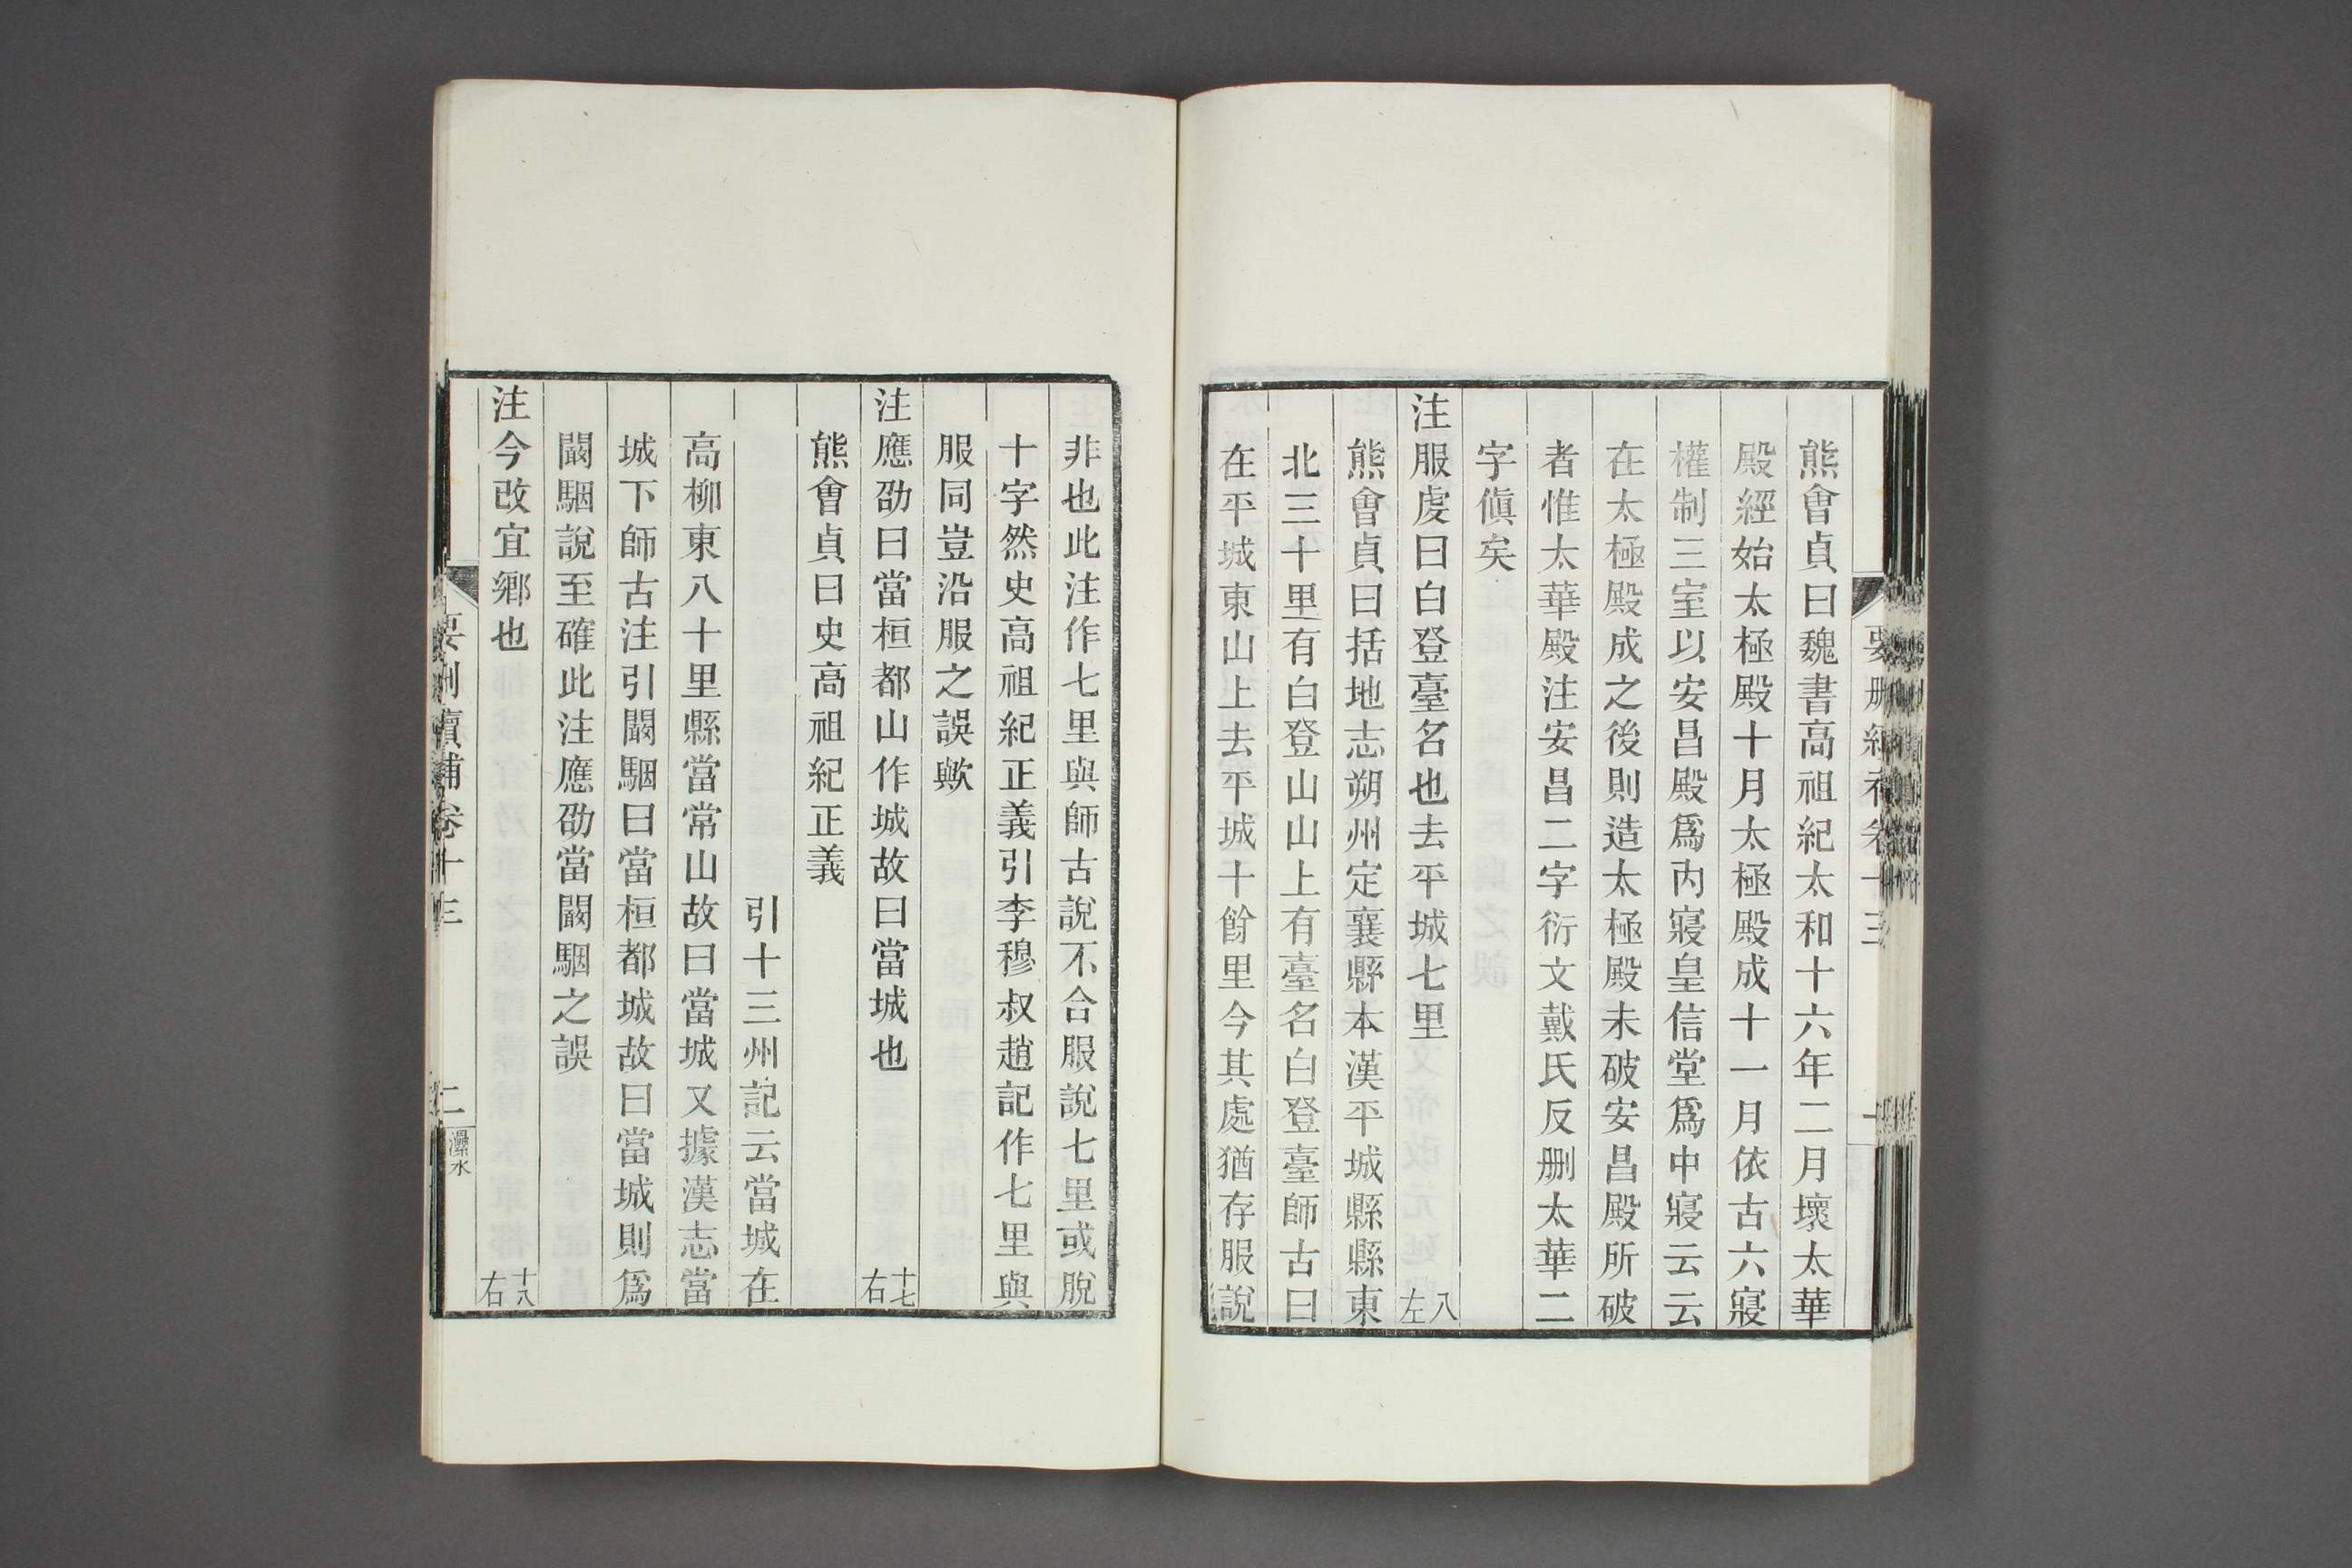 熊會貞曰魏書高祖紀太和十六年二月壞太華
殿經始太極殿十月太極殿成十一月依古六寢
權制三室以安昌殿爲內寢皇信堂爲中寢云云
在太極殿成之後則造太極殿未破安昌殿所破
者惟太華殿注安昌二字衍文戴氏反删太華二
字傎矣
注服虔曰白登臺名也去平城七里 八左
熊會貞曰括地志朔州定襄縣本漢平城縣縣東
北三十里有白登山山上有臺名白登臺師古曰
在平城東山上去平城十餘里今其處猶存服說
非也此注作七里與師古說不合服說七里或脫
十字然史高祖紀正義引李穆叔趙記作七里與
服同豈沿服之誤歟
注應劭曰當桓都山作城故曰當城也 十七右
熊會貞曰史高祖紀正義
引十三州記云當城在
高柳東八十里縣當常山故曰當城又據漢志當
城下師古注引闞駰曰當桓都城故曰當城則爲
闞駰說至確此注應劭當闞駰之誤
注今改宜鄉也 十八右
要刪續補卷十三 二 㶟水